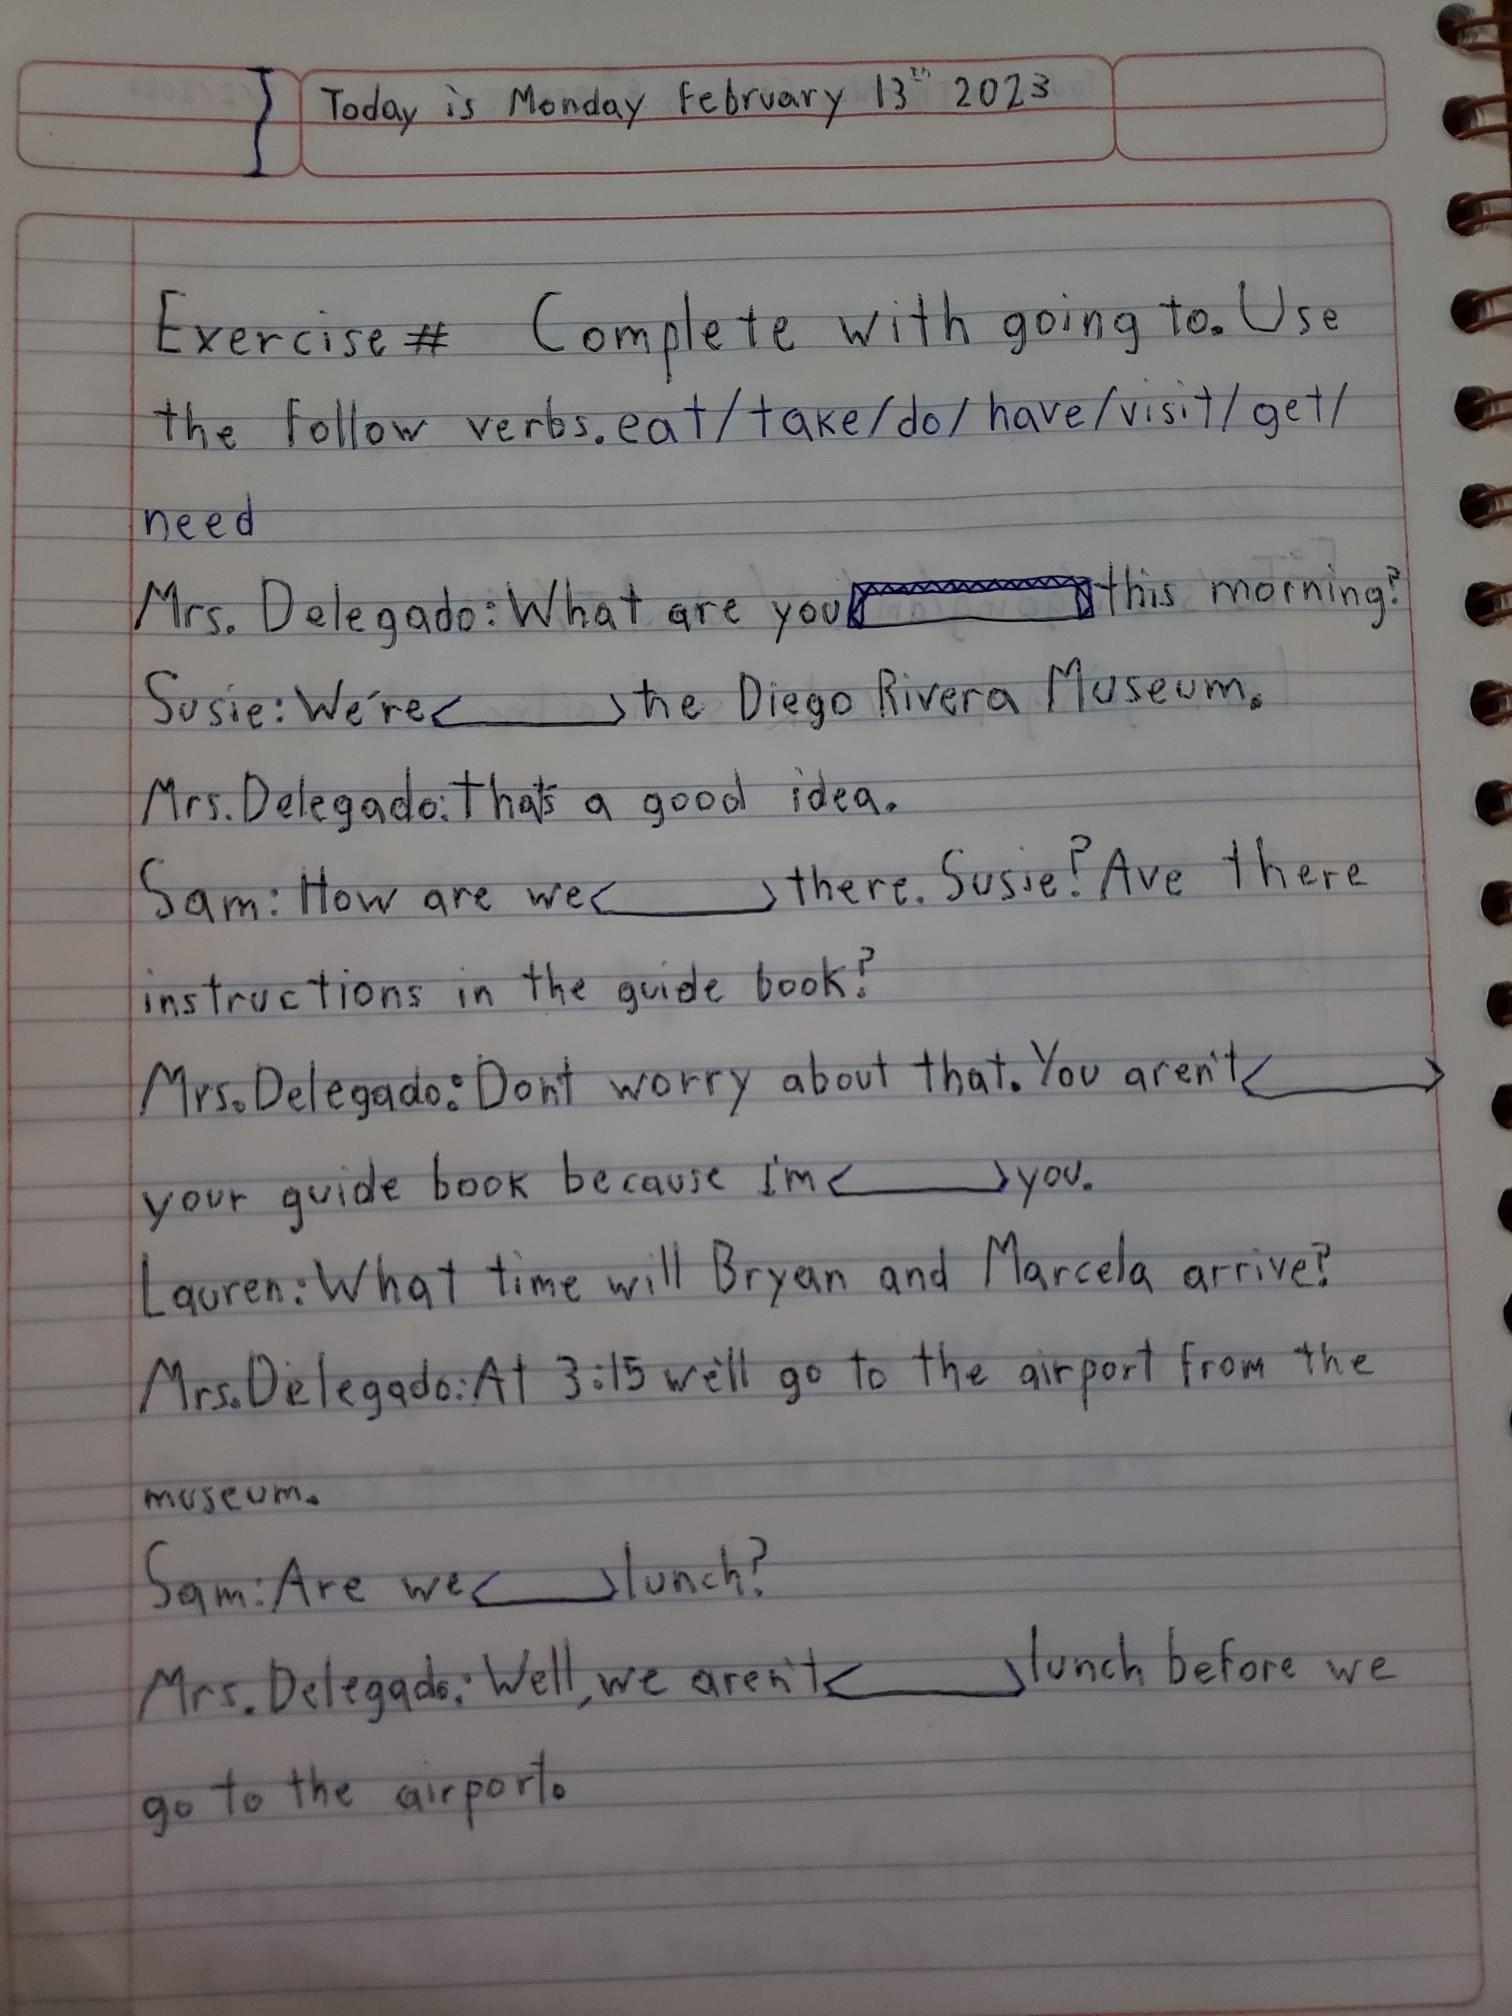 Today is Monday February 13th 2023
Exercise # Complete with going to. Use
the follow verbs. eat/take/do/have/visit/get/
need
Mrs. Delegado: What are you this morning?
Susie: We're the Diego Rivera Museum.
Mrs. Delegado: That's a good idea.
Sam: How are we there. Susie? Ave there
instructions in the guide book?
Mrs. Delegado: Don't worry about that. You aren't
your guide book because I'm you.
Lauren: What time will Bryan and Marcela arrive?
Mrs. Delegado: At 3:15 we'll go to the airport from the
museum.
Sam: Are we lunch?
Mrs. Delegado: Well, we aren't lunch before we
go to the airport.